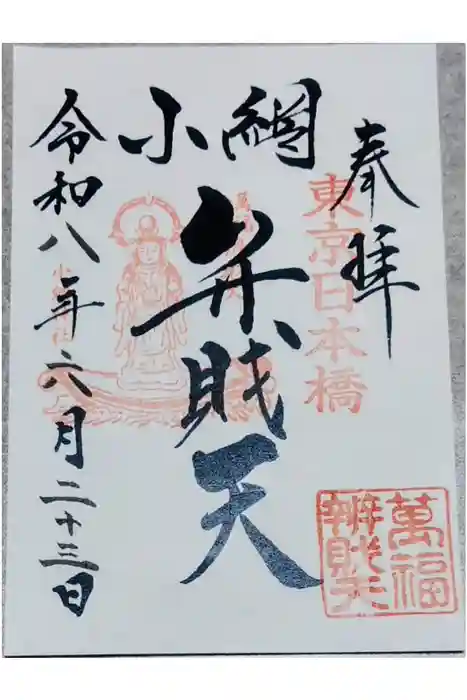 奉拝
東京日本橋
小網
弁財天
令和八年六月二十三日
萬福
辨財天